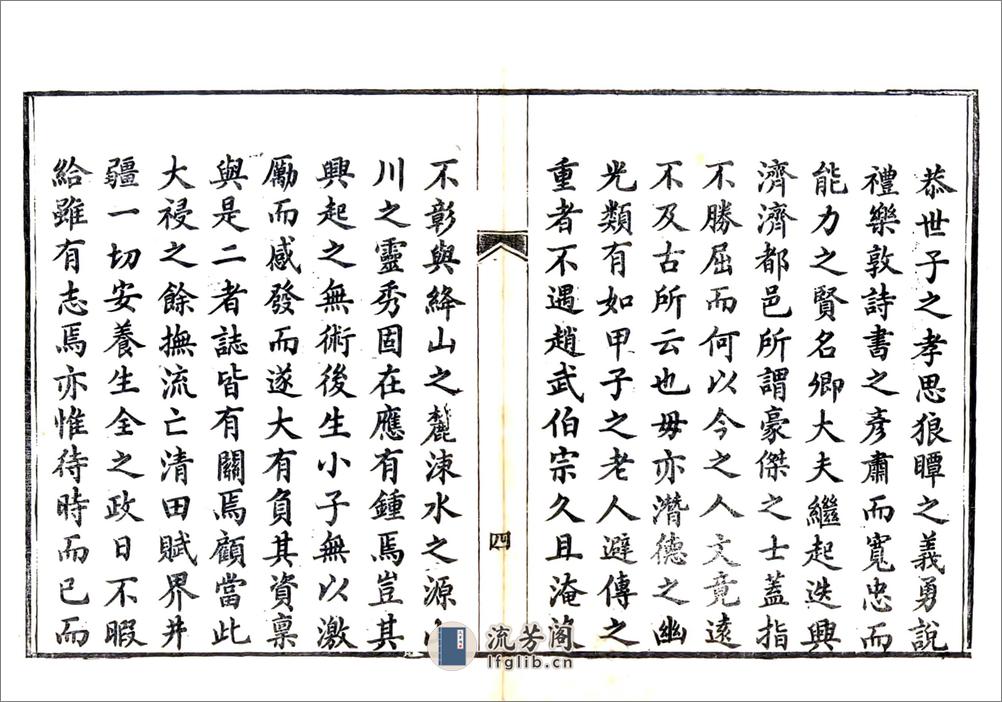 恭世子之孝思狼瞫之義勇說
禮樂敦詩書之彥肅而寬忠而
能力之賢名卿大夫繼起迭興
濟濟都邑所謂豪傑之士蓋指
不勝屈而何以今之人文竟遠
不及古所云也毋亦潛德之幽
光類有如甲子之老人避傳之
重者不遇趙武伯宗久且淹
四
不彰與絳山之麓涑水之源山
川之靈秀固在應有鍾焉豈其
興起之無術後生小子無以激
勵而感發而遂大有負其資稟
與是二者誌皆有關焉顧當此
大祲之餘撫流亡清田賦界井
疆一切安養生全之政日不暇
給雖有志焉亦惟待時而已而
流芳閣
lfglib.cn